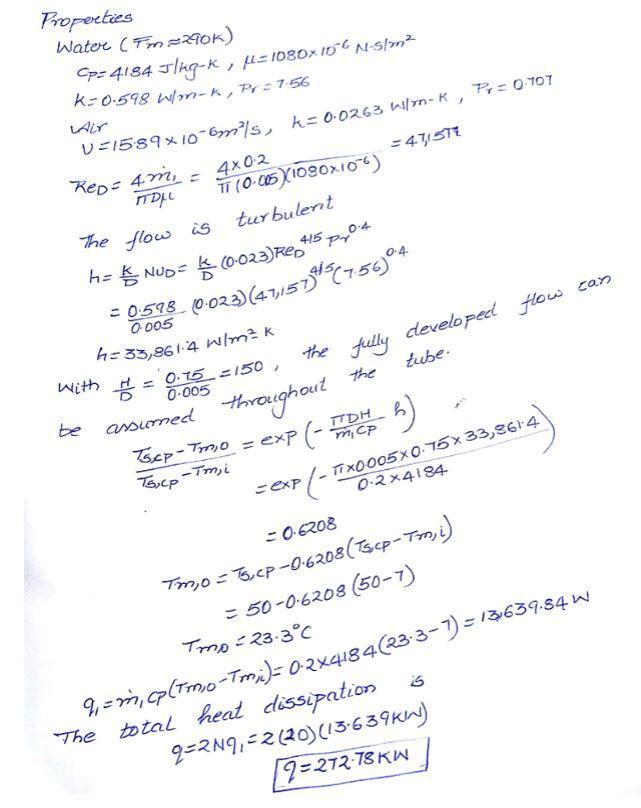 Properties
Water (Tm≈290K)
Cp=4184 J/kg-K, μ=1080×10^-6 N·S/m²
K=0.598 W/m-K, Pr=7.56
Air
υ=15.89×10^-6 m²/s, k=0.0263 W/m-K, Pr=0.707
ReD = 4ṁ₁/πDμ = 4×0.2/π(0.005)(1080×10^-6) = 47,157
The flow is turbulent
h = K/D NuD = K/D (0.023) ReD^4/5 Pr^0.4
= 0.598/0.005 (0.023)(47,157)^4/5 (7.56)^0.4
h=33,861.4 W/m² K
With H/D = 0.75/0.005 = 150, the fully developed flow can
be assumed throughout the tube.
Ts,cp-Tm,o/Ts,cp-Tm,i = exp(-πDH/ṁ₁Cp h)
= exp(-π×0.005×0.75×33,861.4/0.2×4184)
= 0.6208
Tm,o = Ts,cp-0.6208(Ts,cp-Tm,i)
= 50-0.6208(50-7)
Tm,o = 23.3°C
q₁=ṁ₁cp(Tm,o-Tm,i)=0.2×4184(23.3-7)=13,639.84 W
The total heat dissipation is
q=2Nq₁=2(20)(13.639KW)
q=272.78KW